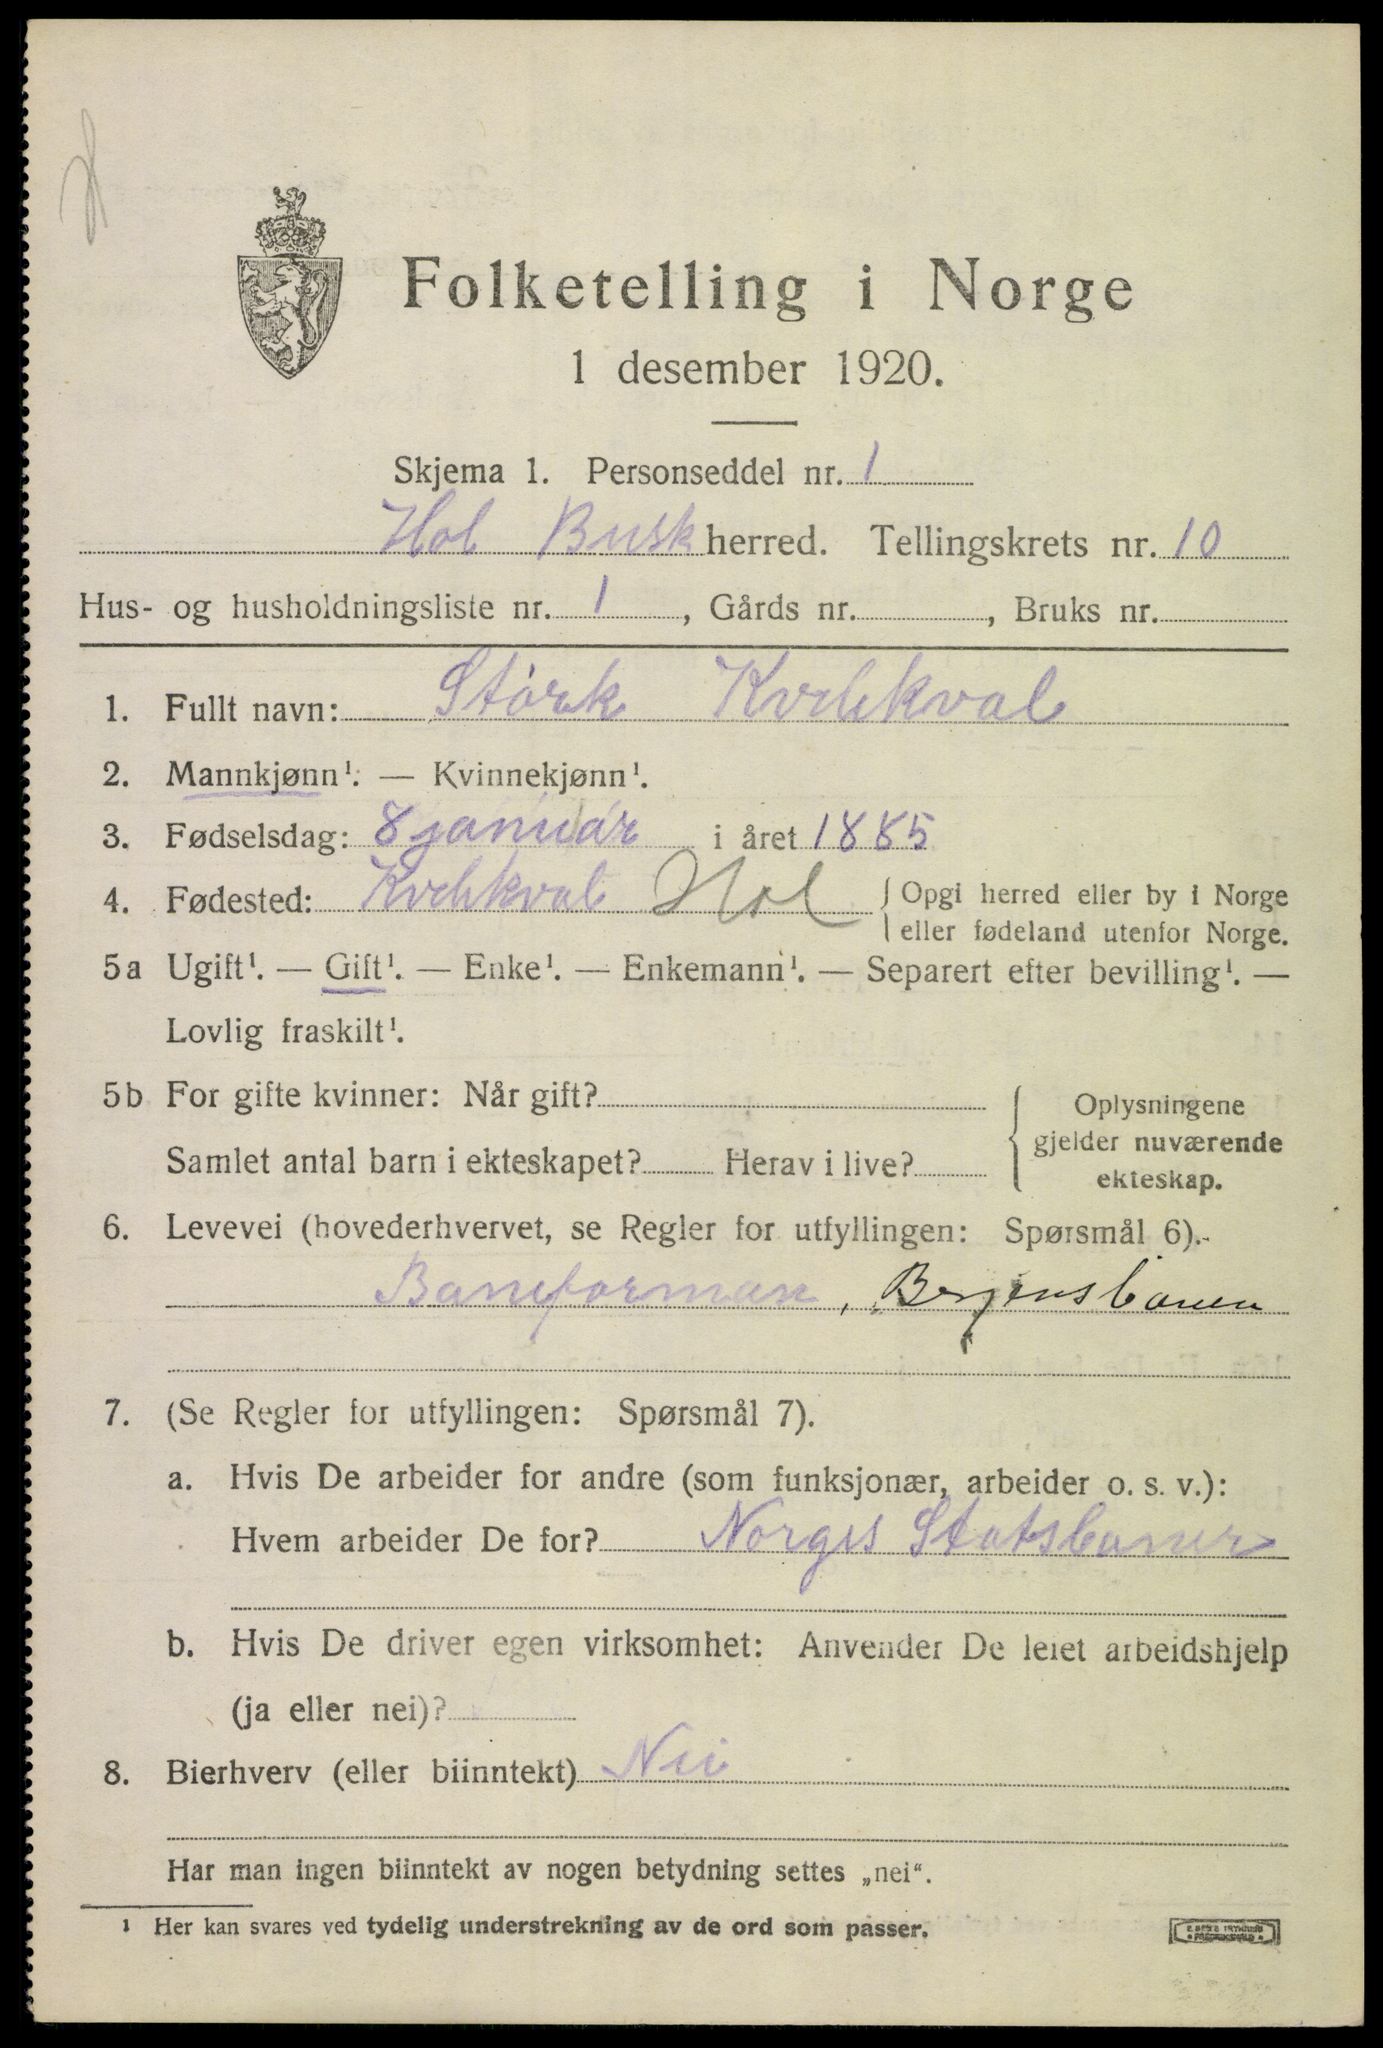 Folketelling i Norge
1 desember 1920.
Skjema 1. Personseddel nr. 1
Hol Busk herred. Tellingskrets nr. 10
Hus- og husholdningsliste nr. 1, Gårds nr. , Bruks nr.
1. Fullt navn: Störk
2. Mannkjønn¹. — Kvinnekjønn¹.
3. Fødselsdag: 8 januar i året 1885
4. Fødested: Hol { Opgi herred eller by i Norge
eller fødeland utenfor Norge.
5a Ugift¹. — Gift¹. — Enke¹. — Enkemann¹. — Separert efter bevilling¹. —
Lovlig fraskilt¹.
5b For gifte kvinner: Når gift?
Samlet antal barn i ekteskapet? Herav i live?
Oplysningene
gjelder nuværende
ekteskap.
6. Levevei (hovederhvervet, se Regler for utfyllingen: Spørsmål 6).
Baneforman, Bergensbanen
7. (Se Regler for utfyllingen: Spørsmål 7).
a. Hvis De arbeider for andre (som funksjonær, arbeider o. s. v.):
Hvem arbeider De for? Norges Statsbaner
b. Hvis De driver egen virksomhet: Anvender De leiet arbeidshjelp
(ja eller nei)?
8. Bierhverv (eller biinntekt) Nei
Har man ingen biinntekt av nogen betydning settes „nei“.
¹ Her kan svares ved tydelig understrekning av de ord som passer.